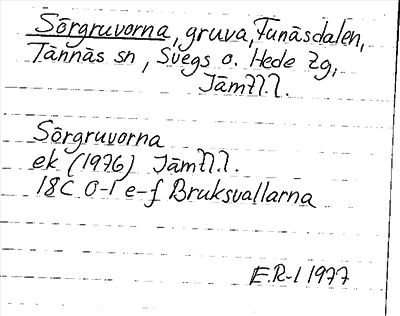 Sörgruvorna, gruva, Funäsdalen,
Tännäs sn, Svegs o. Hede tg,
Jämtl.l.
Sörgruvorna
ek (1976) Jämtl.l.
18C 0-1 e-f Bruksvallarna
E.R-l 1977